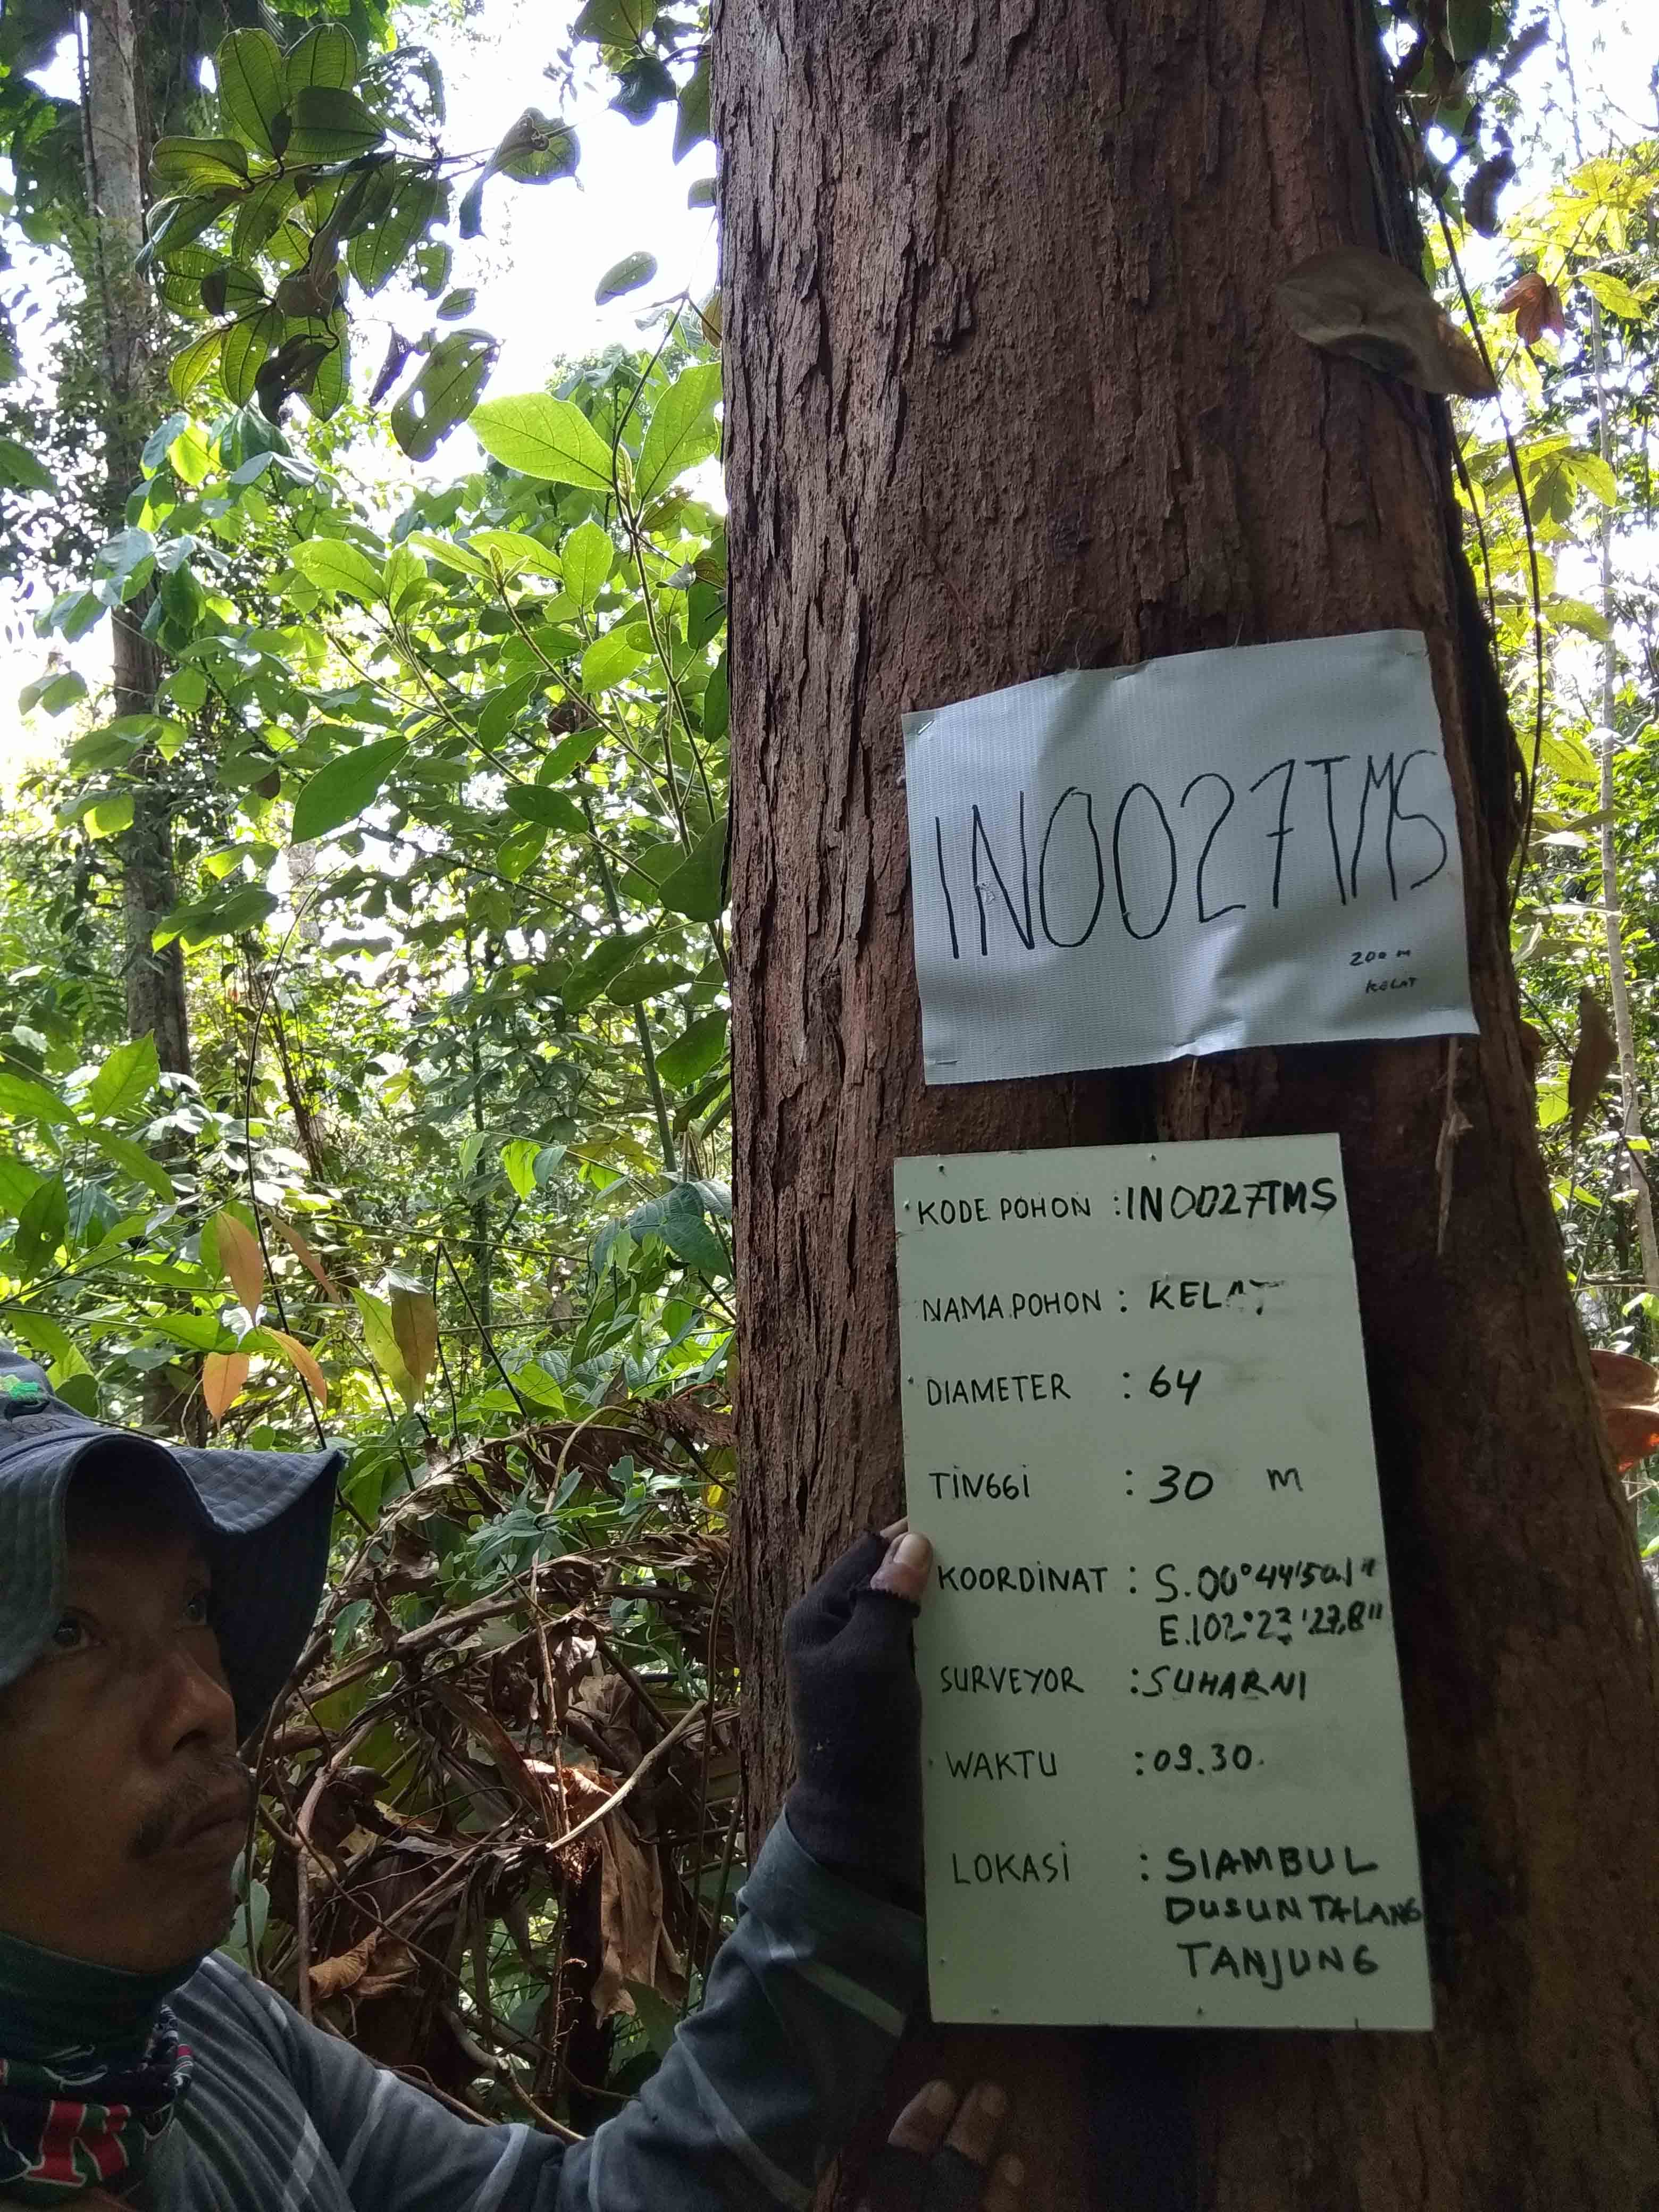 IN0027TMS
200 M
KELAT
KODE POHON : IN0027TMS
NAMA POHON : KELAT
DIAMETER : 64
TINGGI : 30 M
KOORDINAT : S.00°44'50.1"
E.102°23'27,8"
SURVEYOR : SUHARNI
WAKTU : 09.30
LOKASI : SIAMBUL
DUSUN TALANG
TANJUNG